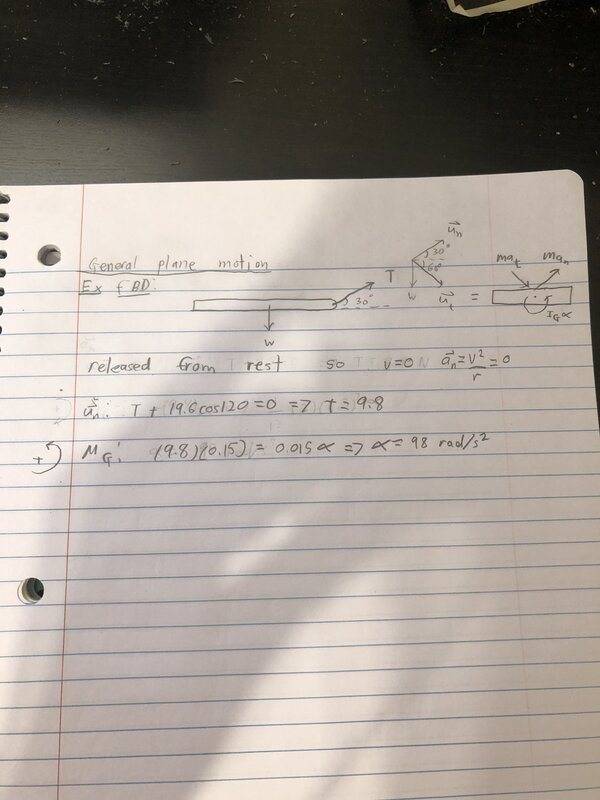 General plane motion
Ex FBD:
T
30°
W
u⃗n
30°
60°
W
u⃗t
=
mat
man
IGα
released from rest so v=0 a⃗n = v²/r = 0
u⃗n: T + 19.6cos120 = 0 => t = 9.8
+ MG: (9.8)(0.15) = 0.015α => α = 98 rad/s²